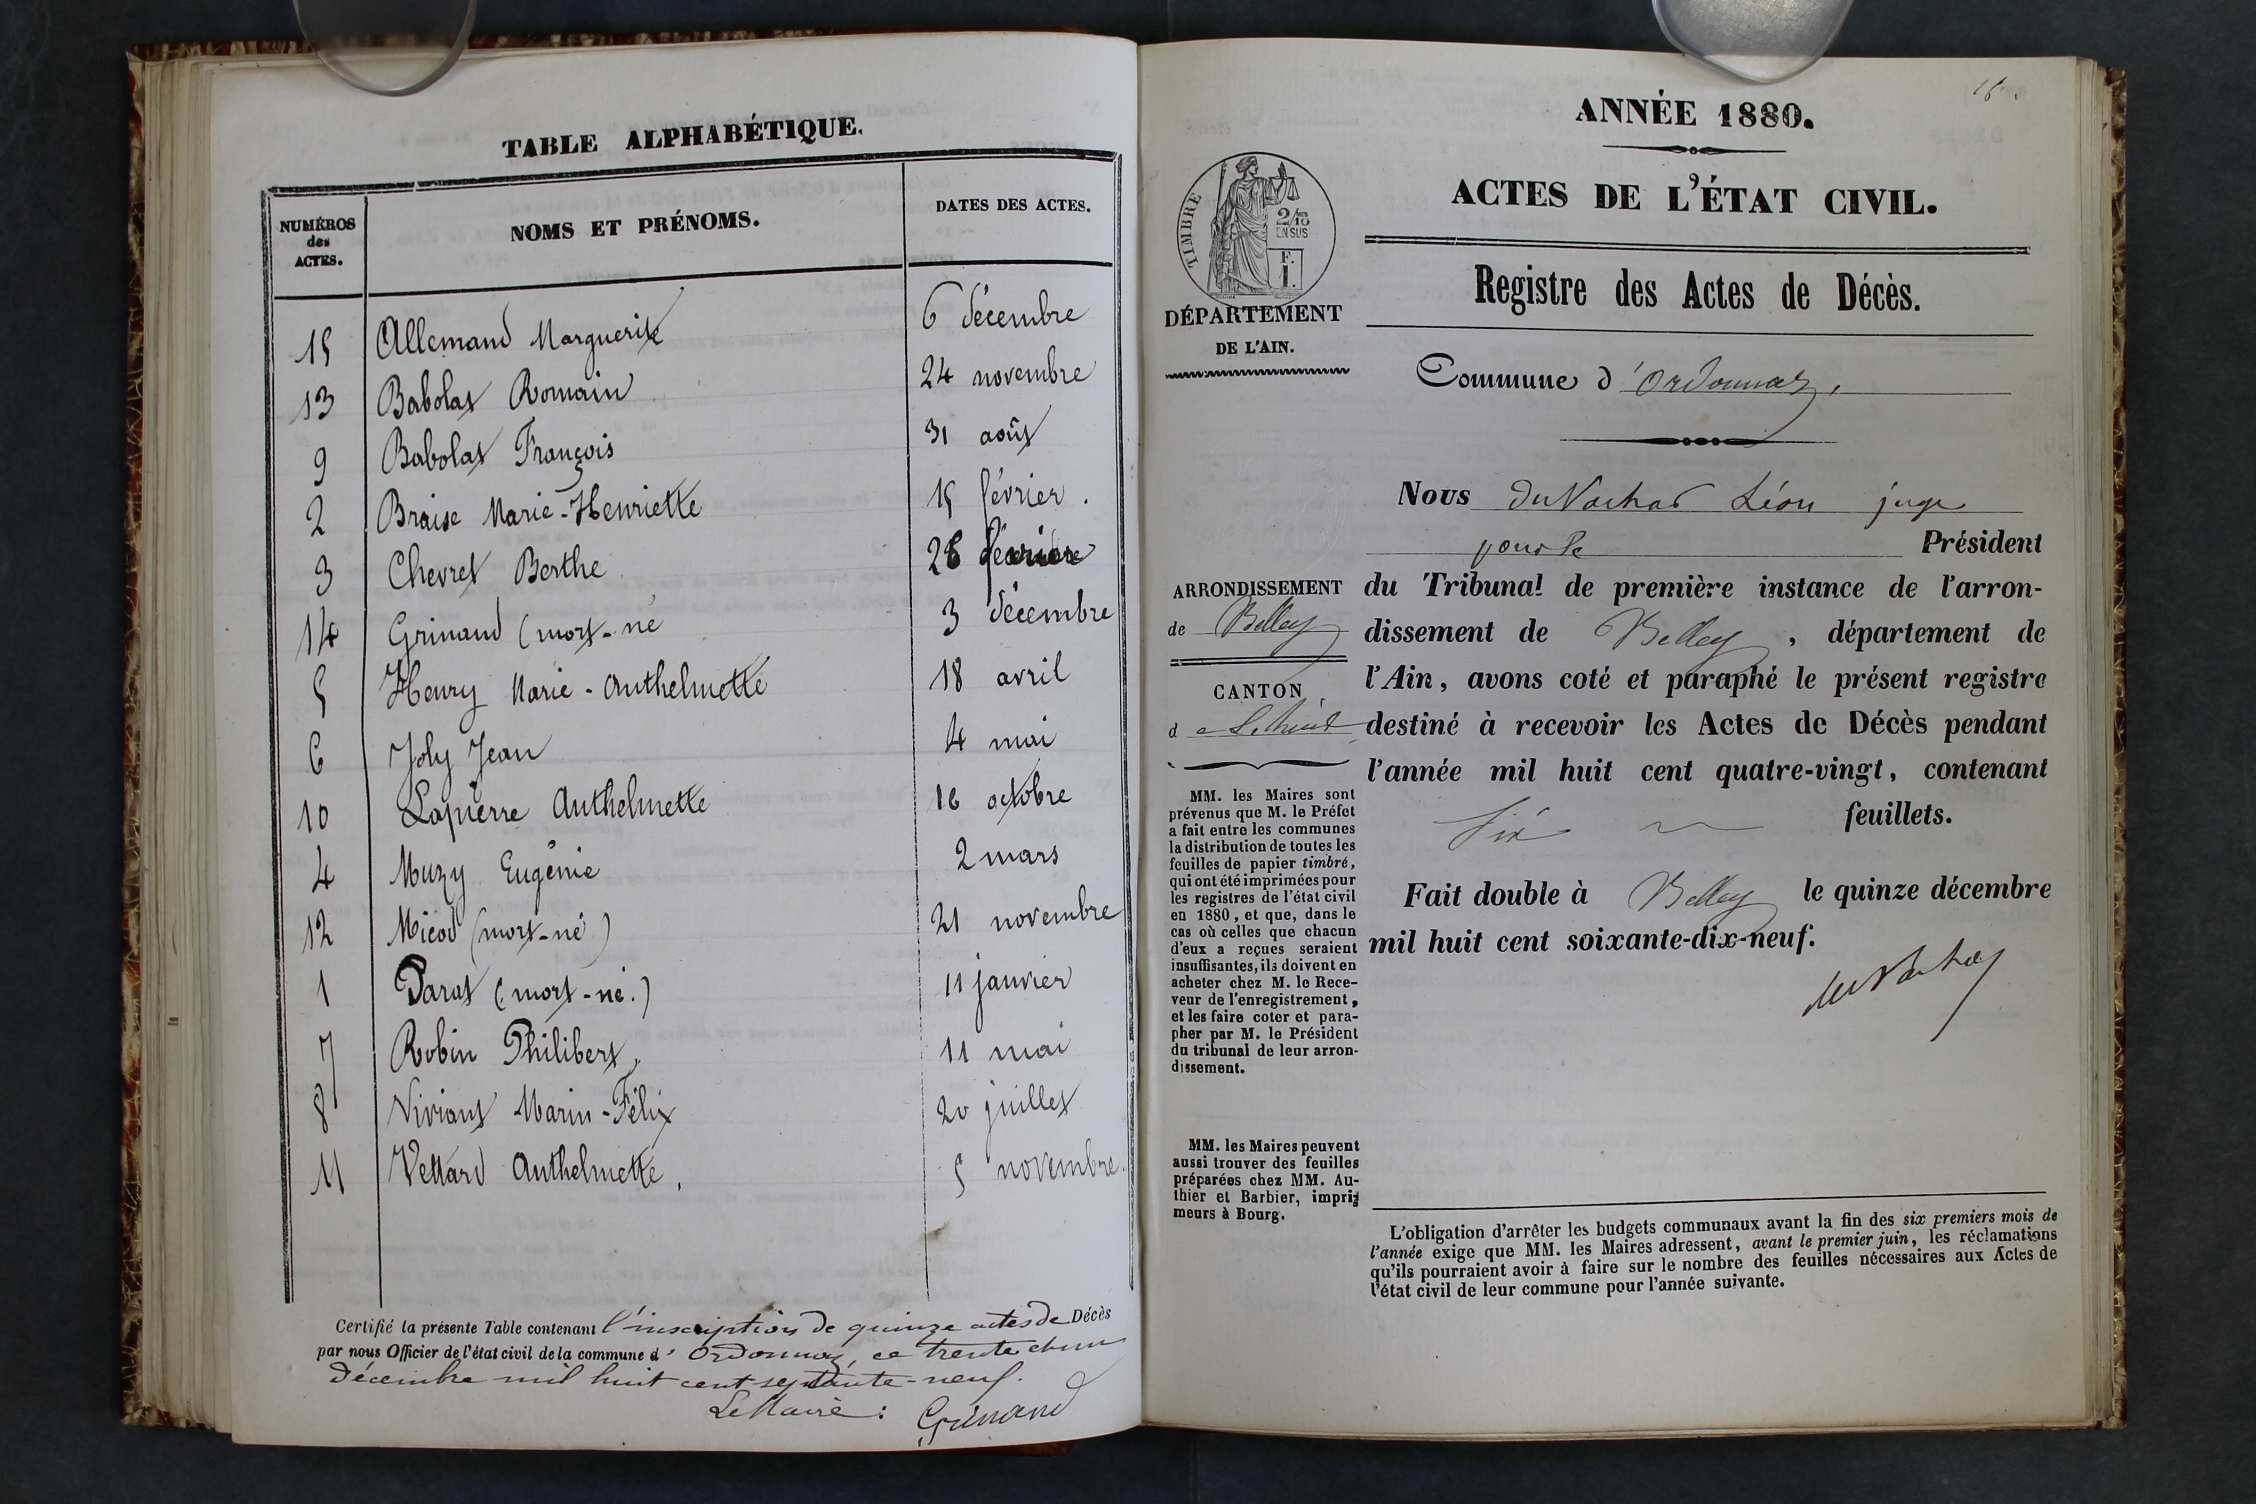 TABLE ALPHABÉTIQUE.
NUMÉROS des ACTES. NOMS ET PRÉNOMS. DATES DES ACTES.
15 Allemand Marguerite 6 décembre
13 Babolat Romain 24 novembre
9 Babolat François 31 août
2 Braise Marie-Henriette 15 février.
3 Chevret Berthe 26 février
14 Grinand (mort-né 3 décembre
5 Henry Marie-Anthelmette 18 avril
6 Joly Jean 4 mai
10 Lapierre Anthelmette 16 octobre
4 Muzy Eugénie 2 mars
12 Micod (mort-né) 21 novembre
1 Parat (mort-né.) 11 janvier
7 Robin Philibert, 11 mai
8 Viviant Marin-Félix 20 juillet
11 Vettard Anthelmette, 5 novembre.
Certifié la présente Table contenant l'inscription de quinze actes de Décès
par nous Officier de l'état civil de la commune d' Ordonnaz, ce trente et un
Décembre mil huit cent septante-neuf.
Le Maire: Grinand
ANNÉE 1880.
ACTES DE L'ÉTAT CIVIL.
TIMBRE
2/10 EN SUS
F. 1.
DÉPARTEMENT
DE L'AIN.
Registre des Actes de Décès.
Commune d'Ordonnaz,
ARRONDISSEMENT
de Belley
CANTON
MM. les Maires sont
prévenus que M. le Préfet
a fait entre les communes
la distribution de toutes les
feuilles de papier timbré,
qui ont été imprimées pour
les registres de l'état civil
en 1880, et que, dans le
cas où celles que chacun
d'eux a reçues seraient
insuffisantes, ils doivent en
acheter chez M. le Rece-
veur de l'enregistrement,
et les faire coter et para-
pher par M. le Président
du tribunal de leur arron-
dissement.
MM. les Maires peuvent
aussi trouver des feuilles
préparées chez MM. Au-
thier et Barbier, impri-
meurs à Bourg.
Nous Léon juge
pour le Président
du Tribunal de première instance de l'arron-
dissement de Belley, département de
l'Ain, avons coté et paraphé le présent registre
destiné à recevoir les Actes de Décès pendant
l'année mil huit cent quatre-vingt, contenant
Six feuillets.
Fait double à Belley le quinze décembre
mil huit cent soixante-dix-neuf.
L'obligation d'arrêter les budgets communaux avant la fin des six premiers mois de
l'année exige que MM. les Maires adressent, avant le premier juin, les réclamations
qu'ils pourraient avoir à faire sur le nombre des feuilles nécessaires aux Actes de
l'état civil de leur commune pour l'année suivante.